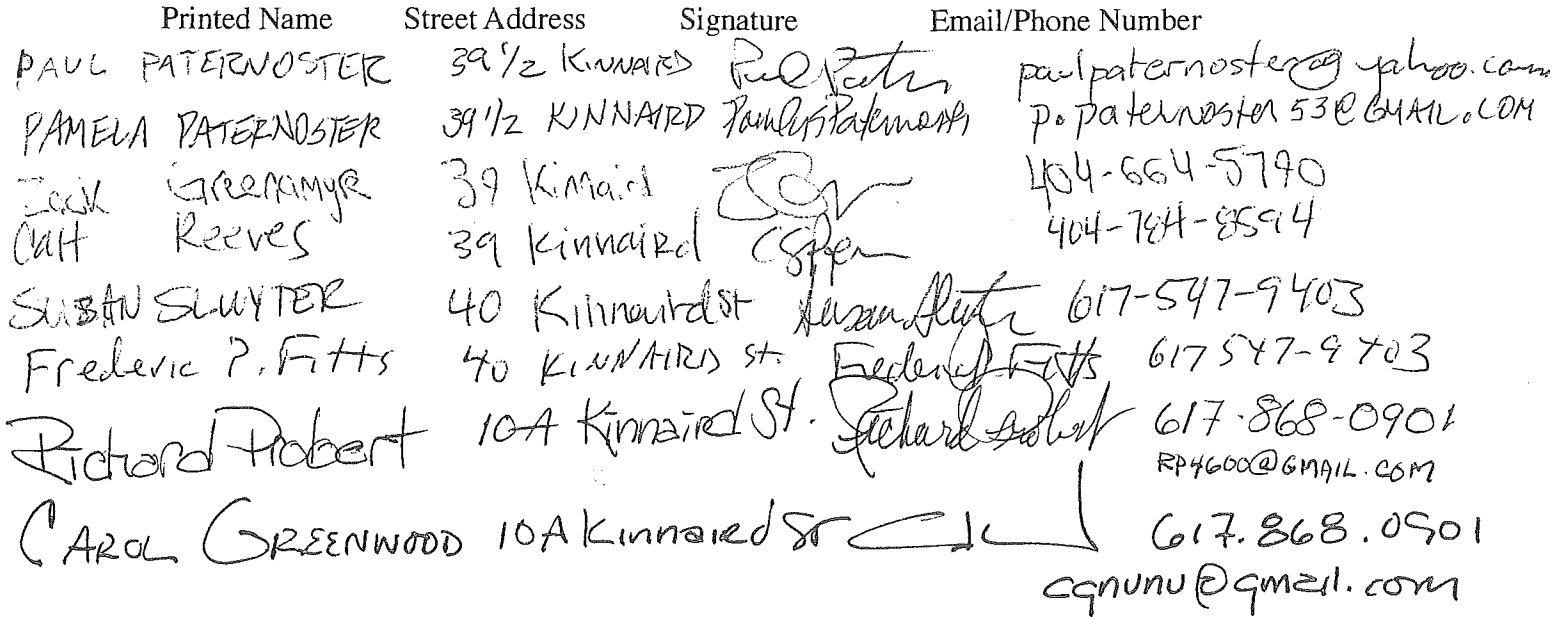 Printed Name Street Address Signature Email/Phone Number
PAUL PATERNOSTER 39 1/2 KINNAIRD paulpaternoster@yahoo.com
PAMELA PATERNOSTER 39 1/2 KINNAIRD p.paternoster53@GMAIL.COM
Zack Greenamyre 39 Kinnaird 404-664-5790
Catt Reeves 39 Kinnaird 404-784-8594
SUSAN SLUYTER 40 Kinnaird St Susan Sluyter 617-547-9403
Frederic P. Fitts 40 KINNAIRD St. Frederic P Fitts 617 547-9403
Richard Probert 10A Kinnaird St. Richard Probert 617-868-0901
RP4600@GMAIL.COM
CAROL GREENWOOD 10A Kinnaird St 617.868.0901
cgnunu@gmail.com